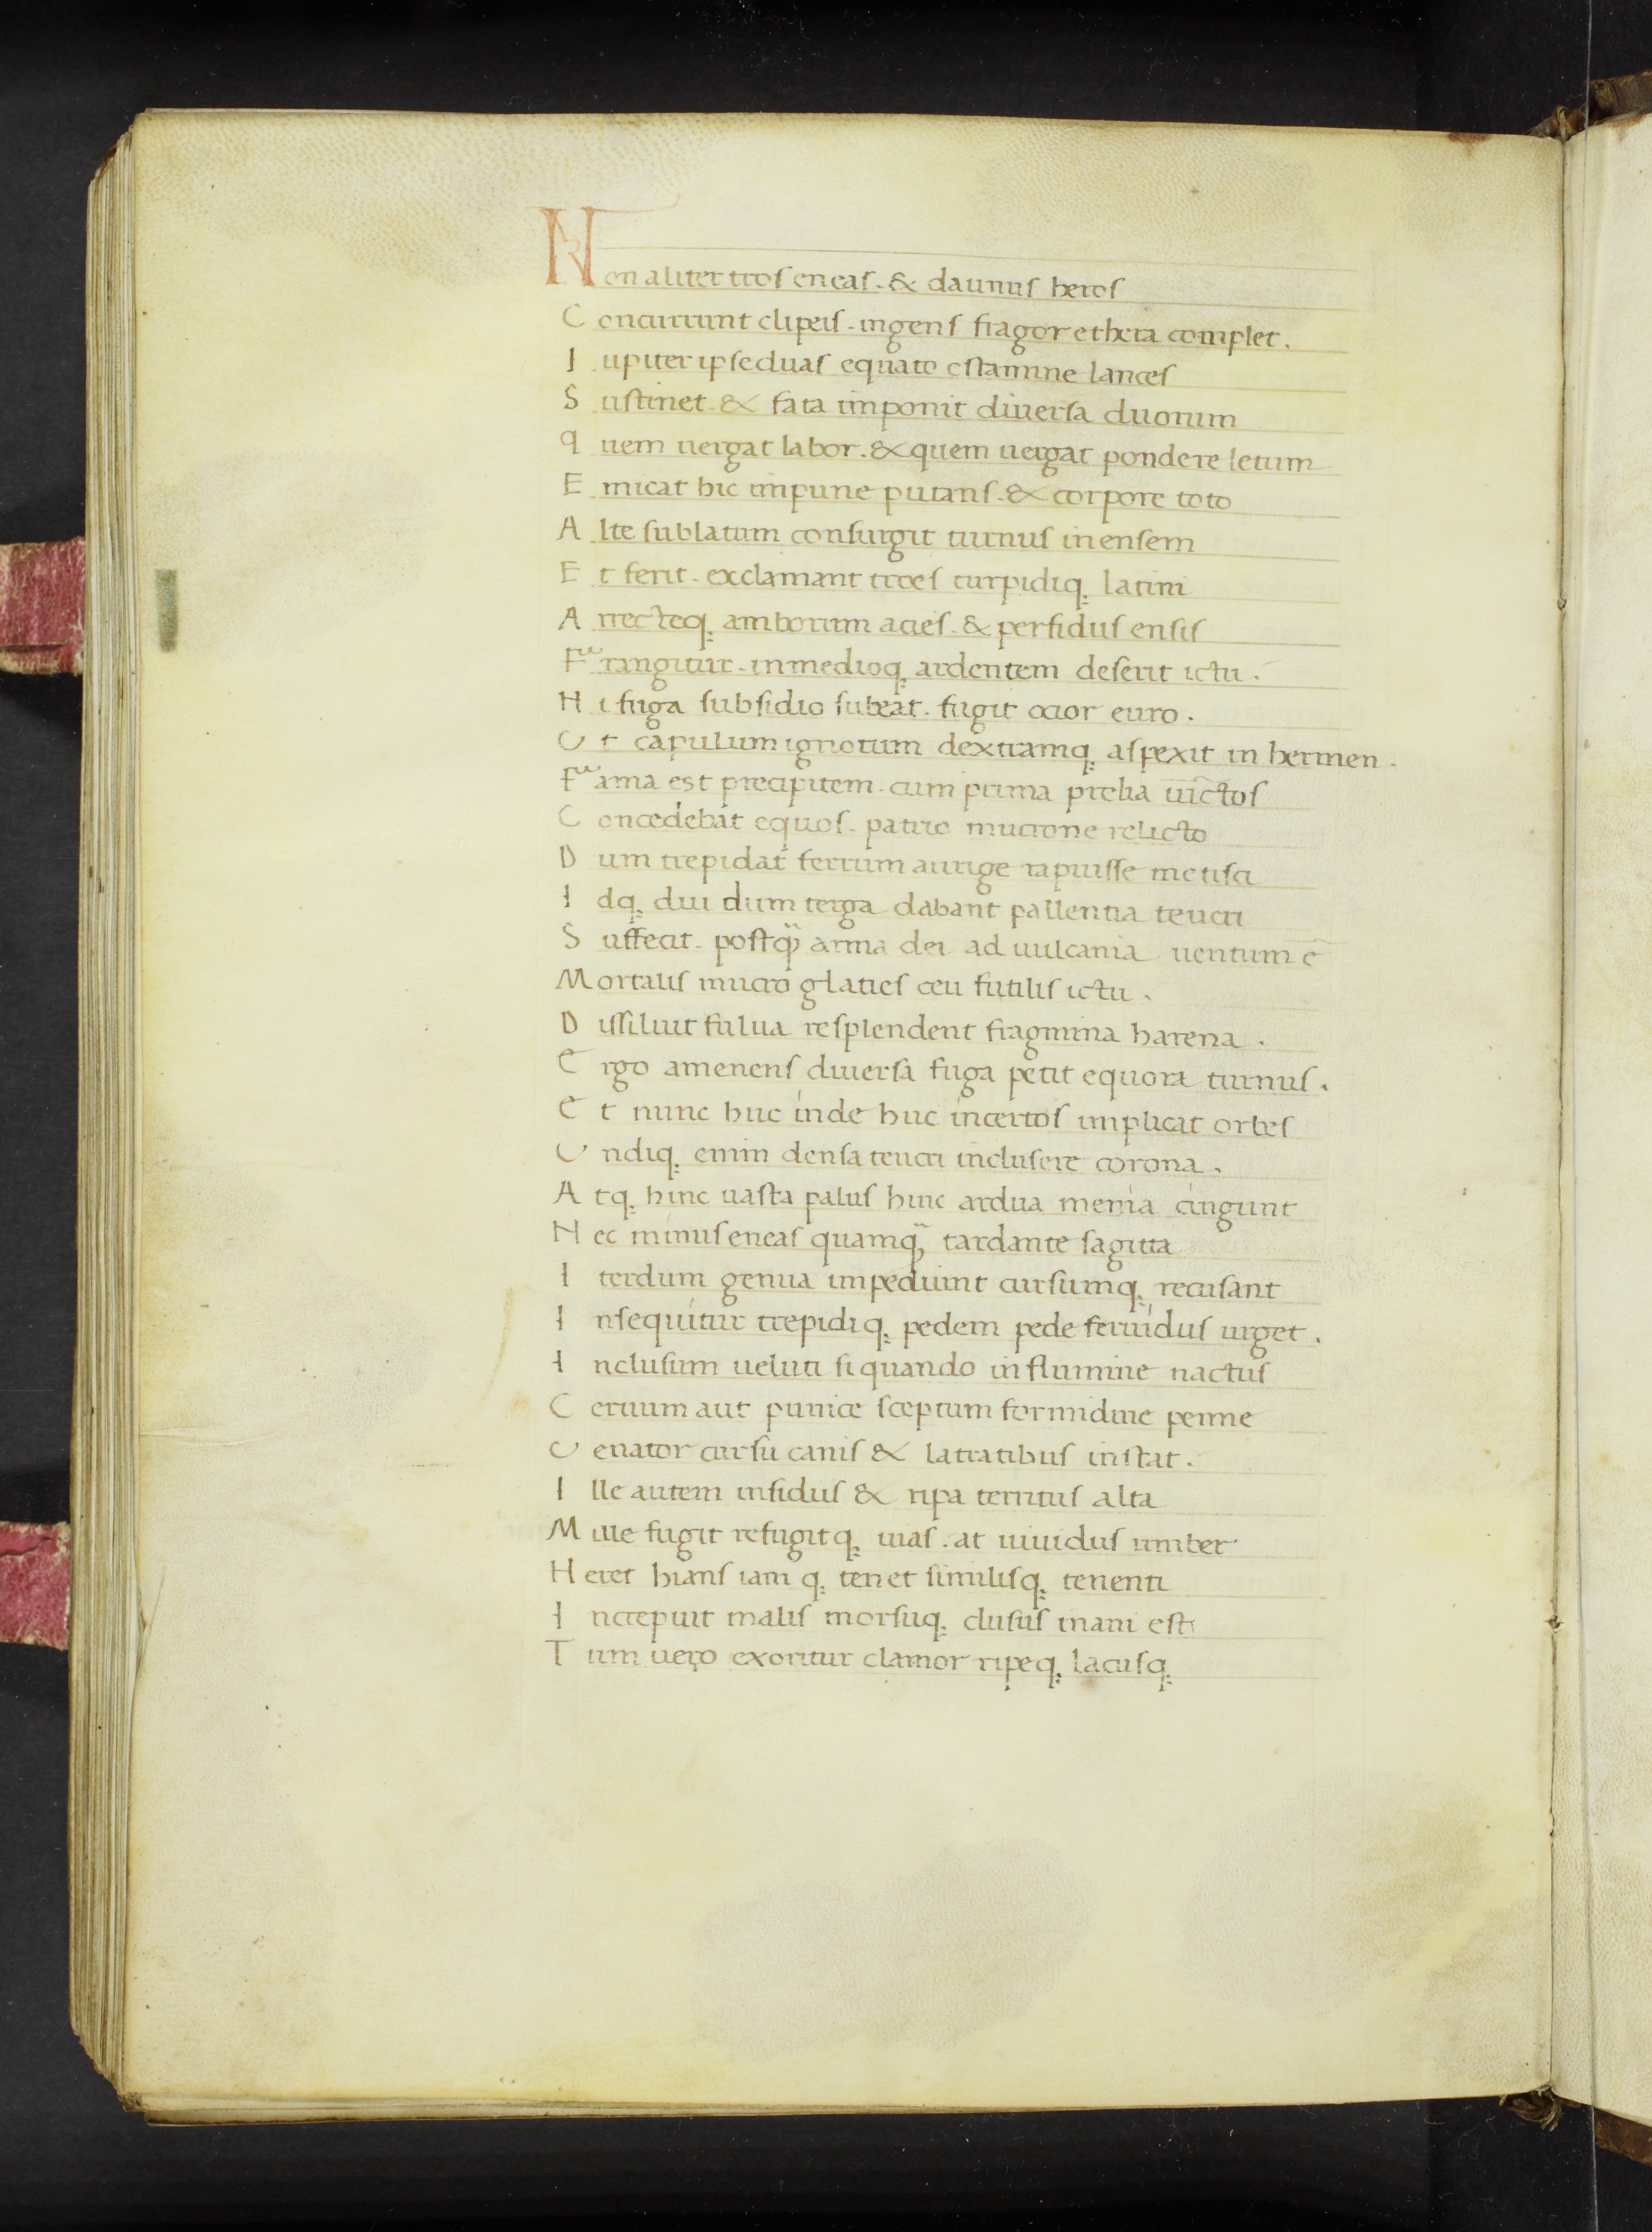 Non aliter tros eneas. & daunus heros
Concurrunt clipeis. ingens fragor ethera complet.
Iupiter ipse duas equato estamine lances
Sustinet. & fata imponit diuersa duorum
quem uergat labor. & quem uergat pondere letum
Emicat hic impune putans. & corpore toto
Alte sublatum consurgit turnus in ensem
Et ferit. exclamant troes turpidiq; latini
Arrecteq; amborum acies. & perfidus ensis
Frangitur. in medioq; ardentem deserit ictu.
Ni fuga subsidio subeat. fugit ocior euro.
Ut capulum ignotum dextramq; aspexit in hermen.
Fama est precipitem. cum prima prelia uictos
Concedebat equos. patrio mucrone relicto
Dum trepidat ferrum aurige rapuisse metisci
Idq; diu dum terga dabant pallentia teucri
Suffecit. postq̃ arma dei ad uulcania uentum ē
Mortalis mucro glaties ceu futilis ictu.
Dissiluit fulua resplendent fragmina harena.
Ergo amenens diuersa fuga petit equora turnus.
Et nunc huc inde huc incertos implicat orbes
Undiq; enim densa teucri inclusere corona.
Atq; hinc uasta palus hinc ardua menia cingunt
Nec minus eneas quamq̃ tardante sagitta
Iterdum genua impediunt cursumq; recusant
Insequitur trepidiq; pedem pede feruidus urget.
Inclusum ueluti si quando in flumine nactus
Ceruum aut punice sceptum formidine penne
Uenator cursu canis & latratibus instat.
Ille autem insidus & ripa territus alta
Mille fugit refugitq; uias. at uiuidus umber
Heret hians iam q; tenet similisq; tenenti
Increpuit malis morsuq; elusus inani est
Tum uero exoritur clamor ripeq; lacusq;